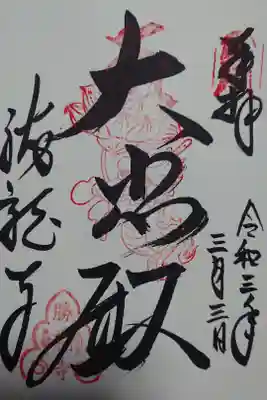 奉拝
令和三年
三月三日
大悲殿
勝龍寺